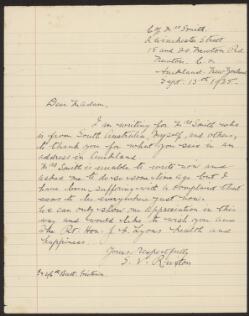 C/o Mrs Smith.
2 Winchester Street
15 and 20 Newton Rd
Newton. C. 2
Auckland. New Zealand
Sept. 13th 1935.
Dear Madam,
I am writing for Mrs Smith who
is from South Australia, myself, and others,
to thank you for what you said in an
address in Auckland.
Mrs Smith is unable to write now and
asked me to do so some time ago but I
have been suffering with a complaint that
seems to be everywhere just now.
We can only show our appreciation in this
way and would like to wish you and
The Rt. Hon. J. A. Lyons health and
happiness.
Yours respectfully